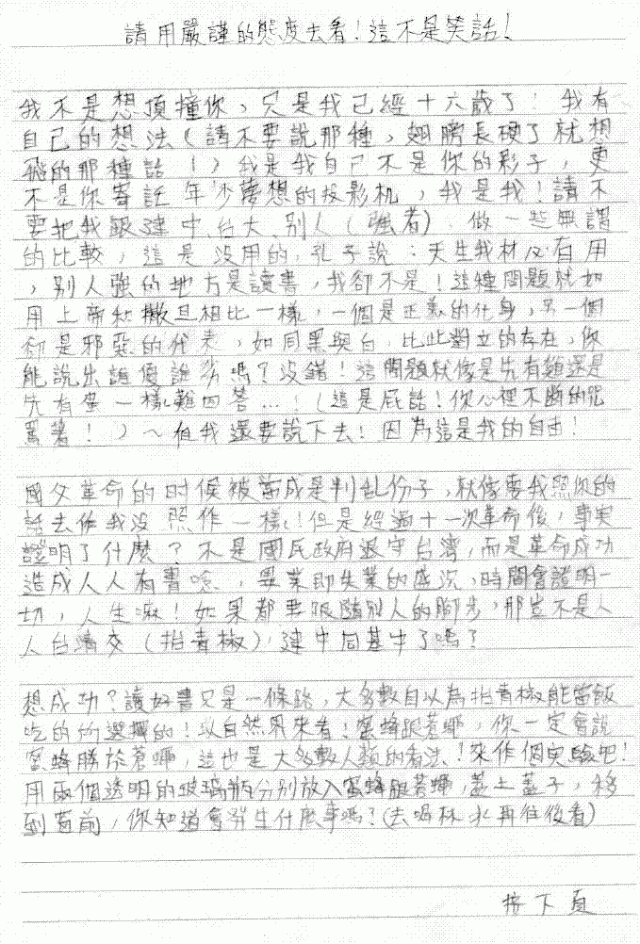 請用嚴謹的態度去看!這不是笑話!
我不是想頂撞你,只是我已經十六歲了!我有
自己的想法(請不要說那種,翅膀長硬了就想
飛的那種話!)我是我自己不是你的影子,更
不是你寄託年少夢想的投影机,我是我!請不
要把我跟建中、台大、別人(強者),做一些無謂
的比較,這是沒用的,孔子說:天生我材必有用
,別人強的地方是讀書,我卻不是!這種問題就如
用上帝和撒旦相比一樣,一個是正義的化身,另一個
卻是邪惡的代表,如同黑與白,比此對立的存在,你
能說出誰優誰劣嗎?沒錯!這問題就像是先有雞還是
先有蛋一樣難回答...!(這是屁話!你心裡不斷的咒
罵著!)~但我還要說下去!因為這是我的自由!
國父革命的时候被當成是判乱份子,就像要我照你的
話去作我沒照作一樣!但是經過十一次革命後,事实
證明了什麼?不是國民政府退守台灣,而是革命成功
造成人人有書唸,畢業即失業的盛況,時間會證明一
切,人生嘛!如果都要跟隨別人的腳步,那豈不是人
人台清交(抬青椒),建中同基中了嗎?
想成功?讀好書只是一條路,大多數自以為抬青椒能當飯
吃的所選擇的!以自然界來看!蜜蜂跟蒼蠅,你一定會說
蜜蜂勝於蒼蠅,這也是大多數人類的看法!來作個实驗吧!
用兩個透明的玻璃瓶分別放入蜜蜂跟蒼蠅,蓋上蓋子,移
到窗前,你知道會發生什麼事嗎?(去喝杯水再往後看)
接下頁